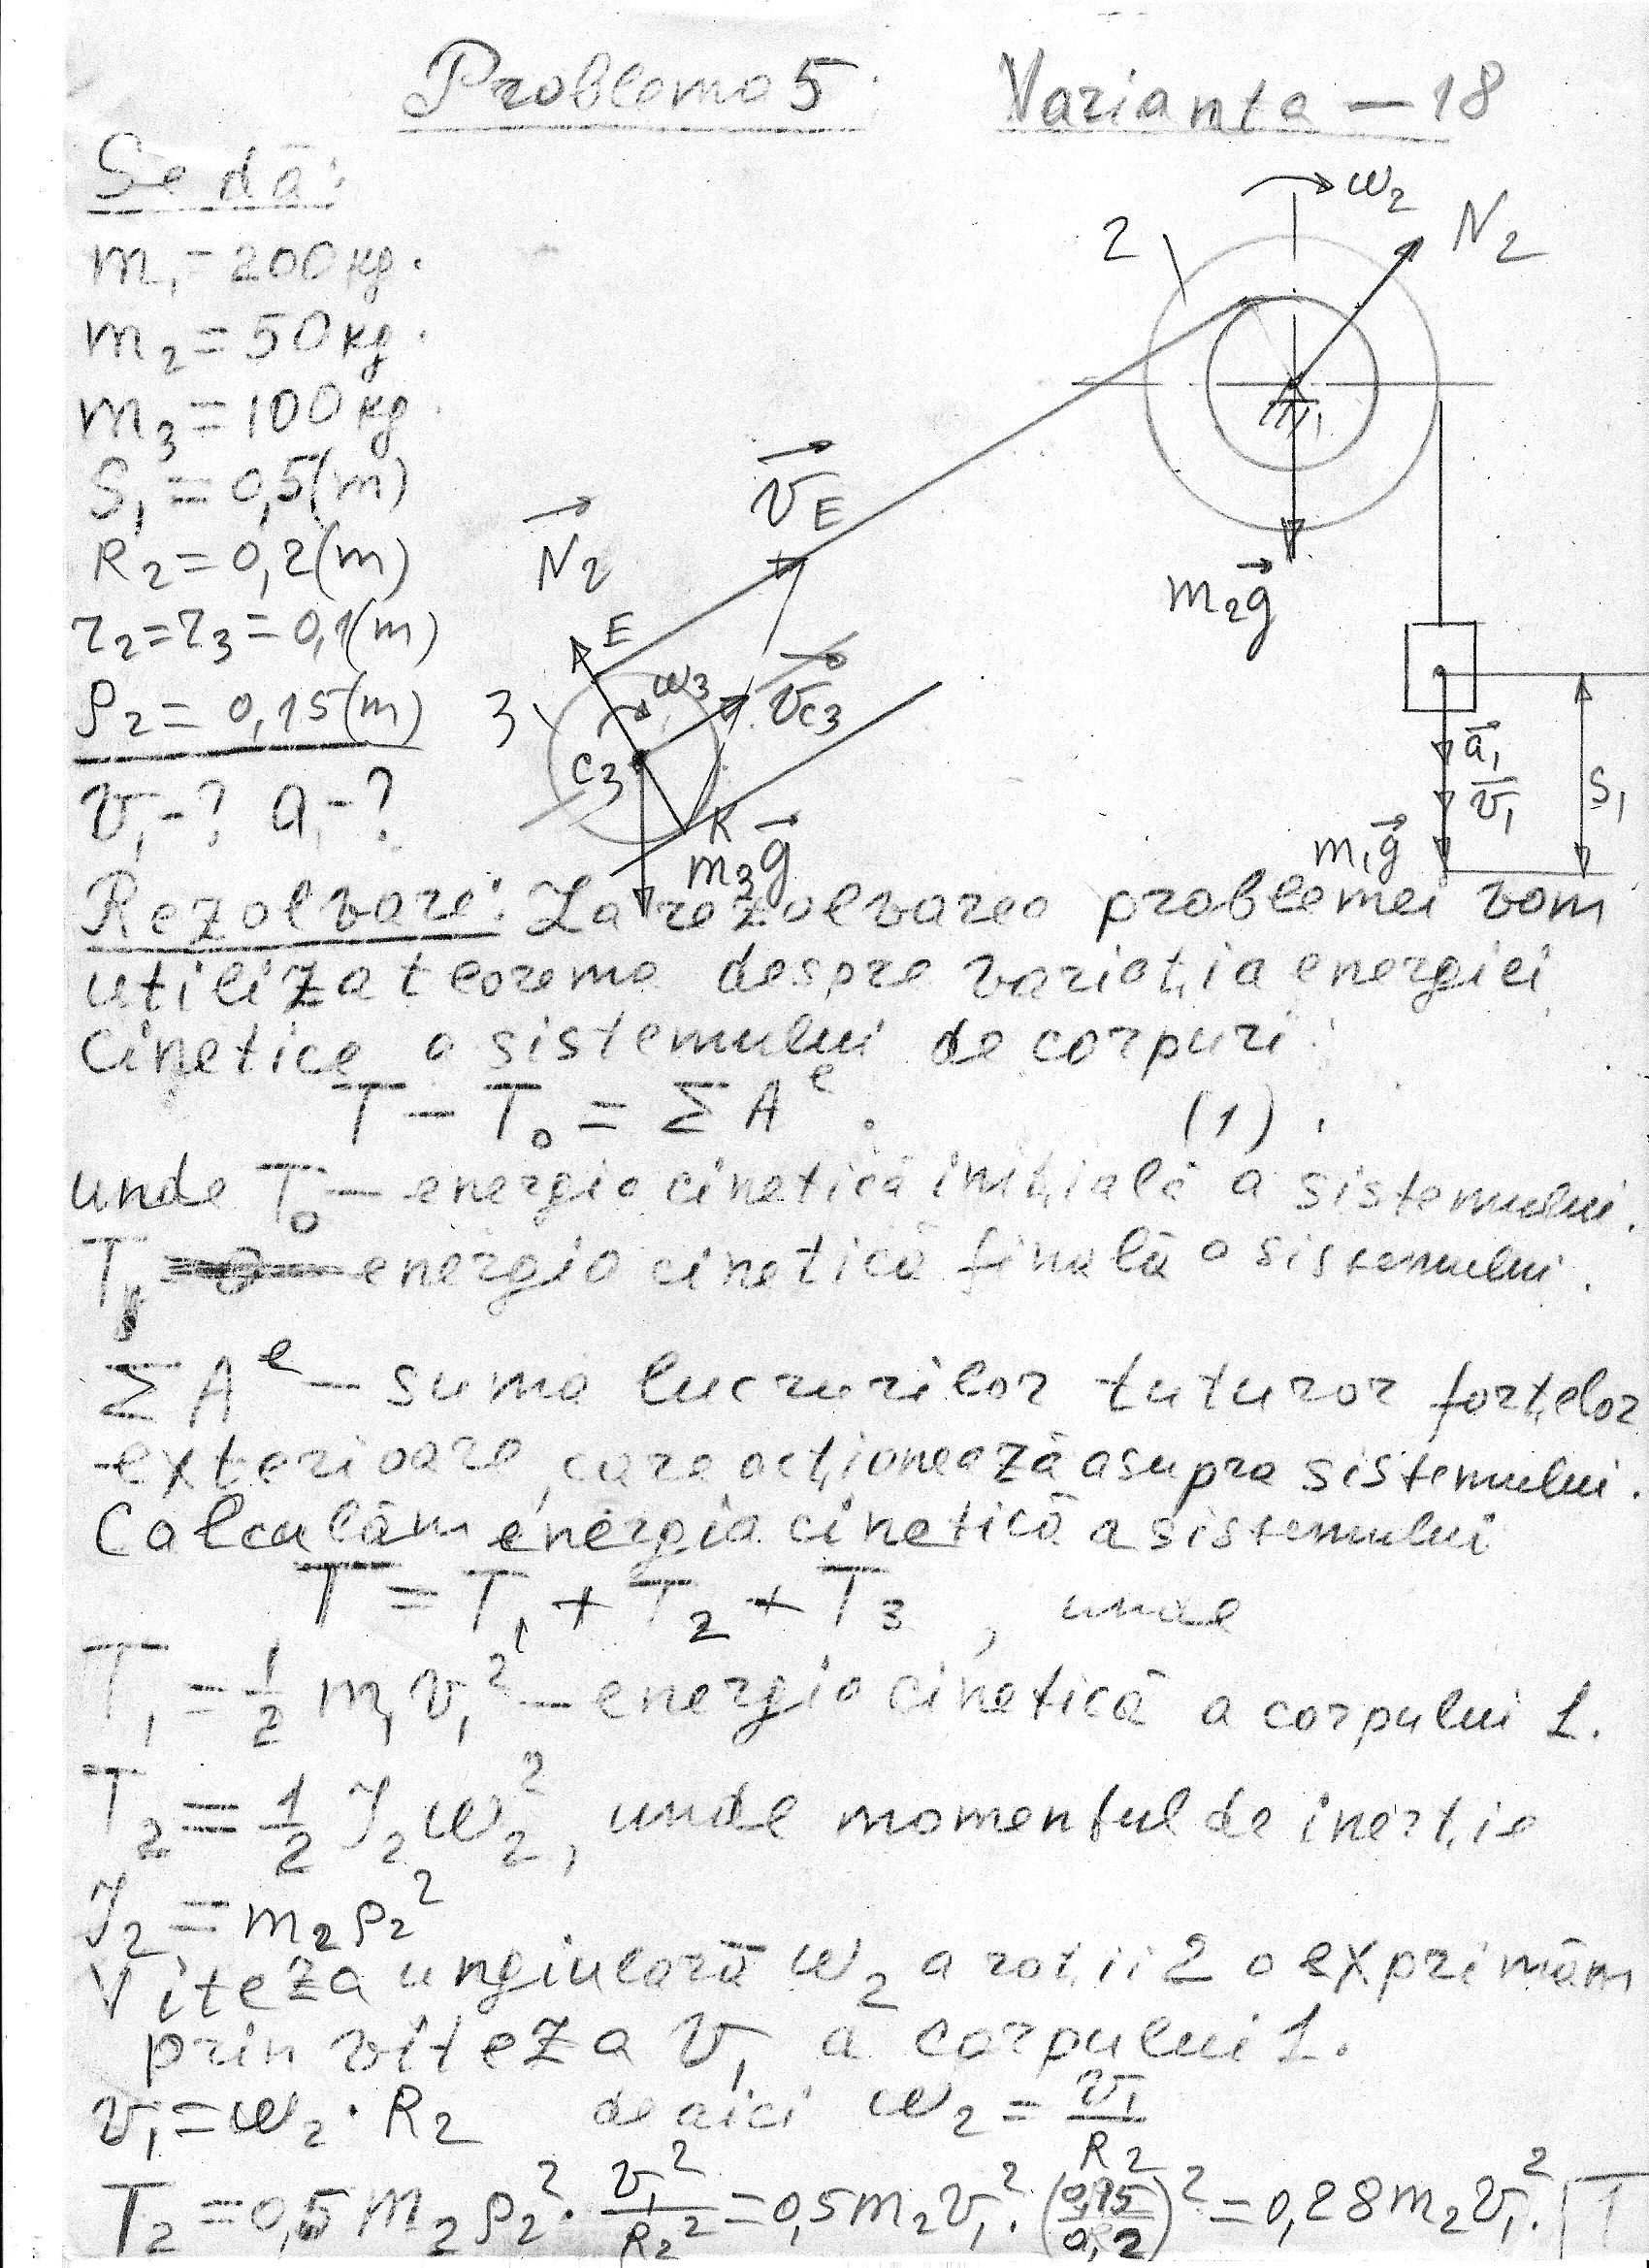 Problema 5. Varianta – 18
Se dă:
m₁ = 200 кg.
m₂ = 50 кg.
m₃ = 100 кg.
S₁ = 0,5(m)
R₂ = 0,2(m)
r₂ = r₃ = 0,1(m)
ρ₂ = 0,15(m)
v₁ - ? a₁ - ?
ω₂
2
N₂
m₂g
v_E
N₂
E
ω₃
3
v_C₃
C₃
K
m₃g
a₁
v₁
S₁
m₁g
Rezolvare: La rezolvarea problemei vom
utiliza teorema despre variația energiei
cinetice a sistemului de corpuri:
T – T₀ = Σ Aᵉ. (1).
unde T₀ – energia cinetică inițială a sistemului.
T – energia cinetică finală a sistemului.
Σ Aᵉ – suma lucrurilor tuturor forțelor
exterioare, care acționează asupra sistemului.
Calculăm energia cinetică a sistemului
T = T₁ + T₂ + T₃, unde
T₁ = 1/2 m₁v₁² – energia cinetică a corpului 1.
T₂ = 1/2 J₂ω₂², unde momentul de inerție
J₂ = m₂ρ₂²
Viteza unghiulară ω₂ a roții 2 o exprimăm
prin viteza v₁ a corpului 1.
v₁ = ω₂ · R₂ de aici ω₂ = v₁/R₂
T₂ = 0,5 m₂ρ₂² · v₁²/R₂² = 0,5 m₂v₁² · (0,15/0,2)² = 0,28 m₂v₁².